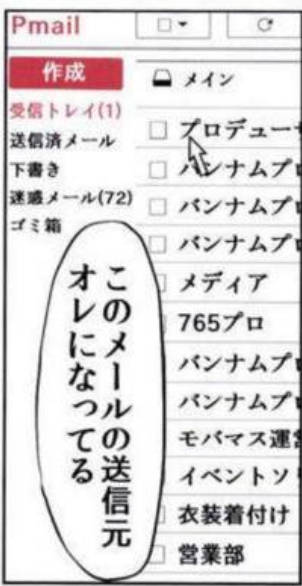 Pmail
作成
受信トレイ(1)
送信済メール
下書き
迷惑メール(72)
ゴミ箱
メイン
プロデューサ
バンナムプロ
バンナムプロ
バンナムプロ
メディア
765プロ
バンナムプロ
バンナムプロ
モバマス運営
イベントソ
衣装着付け
営業部
このメールの送信元
オレになってる